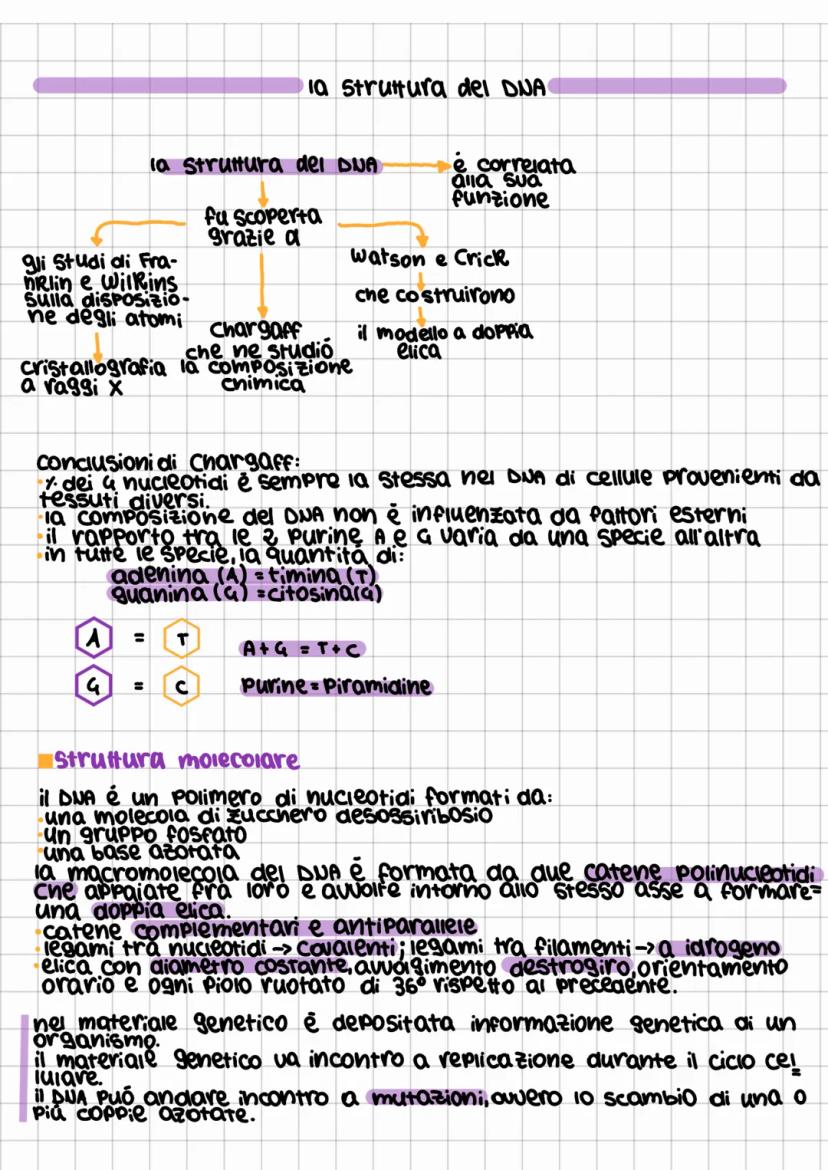 la struttura del DNA
la struttura del DNA
è correlata
alla sua
funzione
fu scoperta
grazie a
gli studi di Fra-
nklin e Wilkins
sulla disposizio-
ne degli atomi
cristallografia
a raggi X
Chargaff
che ne studiò
la composizione
chimica
Watson e Crick
che costruirono
il modello a doppia
elica
conclusioni di Chargaff:
·% dei 4 nucleotidi è sempre la stessa nel DNA di cellule provenienti da
tessuti diversi.
·la composizione del DNA non è influenzata da fattori esterni
·il rapporto tra le 2 purine A e G varia da una specie all'altra
·in tutte le specie, la quantità di:
adenina (A) = timina (T)
guanina (G) = citosina(G)
A = T
A+G = T+C
G = C
Purine = Piramidine
struttura molecolare
il DNA è un polimero di nucleotidi formati da:
·una molecola di zucchero desossiribosio
·un gruppo fosfato
·una base azotata
la macromolecola del DNA è formata da due catene polinucleotidi
che appaiate fra loro e avvolte intorno allo stesso asse a formare=
una doppia elica.
·catene complementari e antiparallele
·legami tra nucleotidi → covalenti; legami tra filamenti → a idrogeno
·elica con diametro costante, avvolgimento destrogiro, orientamento
orario e ogni piolo ruotato di 36° rispetto al precedente.
nel materiale genetico è depositata informazione genetica di un
organismo.
il materiale genetico va incontro a replicazione durante il ciclo cel=
lulare.
il DNA può andare incontro a mutazioni, ovvero lo scambio di una o
più coppie azotate.